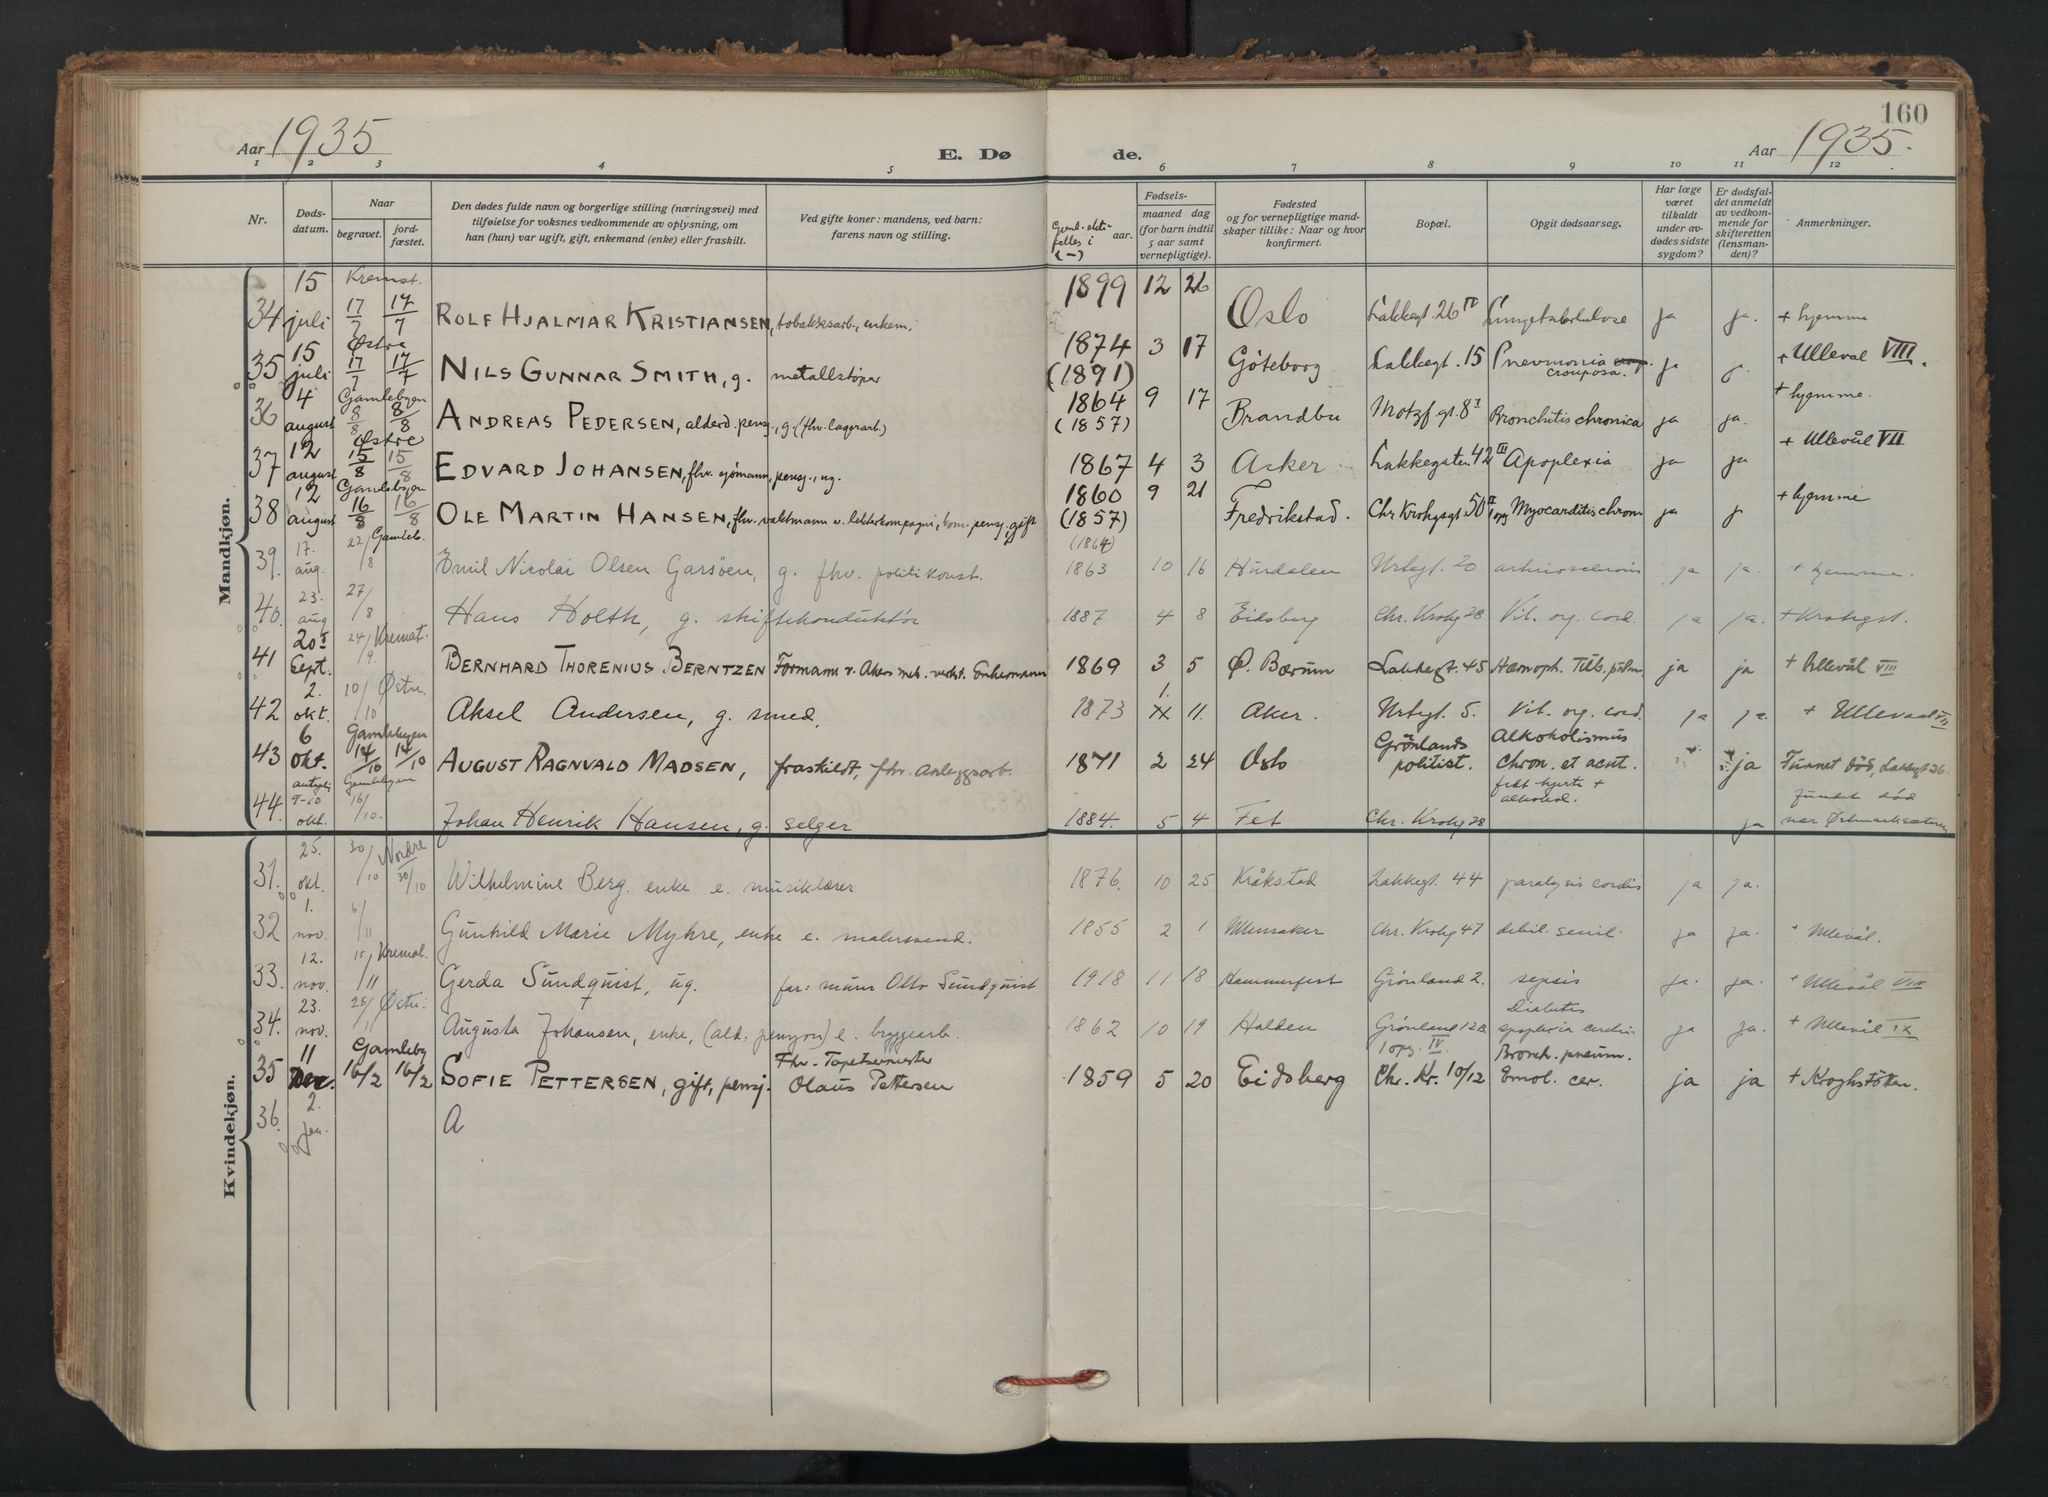 160
Aar 1935 E. Dø de. Aar 1935.
1 2 3 4 5 6 7 8 9 10 11 12
Nr.
Døds-
datum.
Naar
begravet.
jord-
fæstet.
Den dødes fulde navn og borgerlige stilling (næringsvei) med
tilføielse for voksnes vedkommende av oplysning, om
han (hun) var ugift, gift, enkemand (enke) eller fraskilt.
Ved gifte koner: mandens, ved barn:
farens navn og stilling.
aar.
Fødsels-
maaned dag
(for barn indtil
5 aar samt
vernepligtige).
Fødested
og for vernepligtige mand-
skaper tillike: Naar og hvor
konfirmert.
Bopæl.
Opgit dødsaarsag.
Har læge
været
tilkaldt
under av-
dødes sidste
sygdom?
Er dødsfal-
det anmeldt
av vedkom-
mende for
skifteretten
(lensman-
den)?
Anmerkninger.
Mandkjøn.
34 15 juli Kremat. 17/7 17/7 ROLF HJALMAR KRISTIANSEN, tobakksarb., enkem. 1899 12 26 Oslo Lakkegt. 26 IV Lungetuberkulose ja ja. + hjemme
35 15 juli Østre 17/7 17/7 NILS GUNNAR SMITH, g. metallstøper 1874 (1891) 3 17 Göteborg Lakkegt. 15 Pnevmonia crouposa. ja + Ulleval VIII.
36 4 august Gamlebyen 8/8 8/8 ANDREAS PEDERSEN, alderd. pensj., g. (fhv. lagerarb) 1864 (1857) 9 17 Brandbu Motzf. gt. 8 I Bronchitis chronica ja ja. + hjemme.
37 12 august Østre 15/8 15/8 EDVARD JOHANSEN, fhv. sjömann, pensj., ug. 1867 4 3 Asker Lakkegaten 42 III Apoplexia ja ja + Ullevål VII
38 12 august Gamlebyen 16/8 16/8 OLE MARTIN HANSEN, fhv. vaktmann v. lekterkompagni, kom. pensj., gift 1860 (1857) 9 21 Fredrikstad. Chr Krohgsgt. 50 II opg Myocarditis chron. ja j + hjemme
39. 17. aug. 22/8 Gamleb. Emil Nicolai Olsen Garsøen, g. fhv. politikonst. (1864) 1863 10 16 Hurdalen Urtegt. 20 ja ja. + hjemme.
40. 23. aug 27/8 Hans Holth, g. skiftekonduktør 1887 4 8 Eidsberg Chr. Krohg 28 Vit. org. cord. ja ja. + Krohgst.
41 20 Sept. 24/9. Kremat. BERNHARD THORENIUS BERNTZEN Formann v. Akers mek. verkst. Enkemann 1869 3 5 Ø. Bærum Lakkegt. 45 Hæmoph. Tub. pulm. ja ja + Ullevål VIII
42 2. okt. 10/10 Østre. Aksel Andersen, g. smed. 1873 1. 11. Aker. Urtegt. 5. Vit. org. cord. ja ja. + Ullevaal VII
43 6 okt. Gamlebyen 14/10 14/10 AUGUST RAGNVALD MADSEN, fraskildt, fhv. Anleggsarb. 1871 2 24 Oslo Grønlands politist. Alkoholismus chron. et acut. ja Funnet död, Lakkegt 26.
44. antagelig 9-10 okt. Gamlebyen 16/10. Johan Henrik Hansen, g. selger 1884. 5 4 Fet Chr. Krohg 28 fedt hjerte + alkohol. ja fundet død nær Østmarksæteren
Kvindekjøn.
31. 25. okt. 30/10 Nordre 30/10 Wilhelmine Berg. enke e. musiklærer 1876. 10 25 Kråkstad Lakkegt. 44 paralysis cordis ja ja.
32 1. nov. 6/11 Gunhild Marie Myhre, enke e. malersvend. 1855 2 1 Ullensaker Chr. Krohg 47 debil. senil. ja ja. + Ullevål.
33. 12. nov. 15/11 Kremat. Gerda Sundquist, ug. far: murer Otto Sundquist 1918 11 18 Hammerfest Grønland 2. sepsis ja. ja. + Ullevål VIII
34. 23. nov. 25/11 Østre. Augusta Johansen, enke, (ald. pensjon) e. bryggearb. 1862 10 19 Halden Grønland 12a. 1 opg. IV Diabetes apoplexia cerebri ja ja. + Ullevål IX
35 11 Des. Gamleby 16/12 16/12 SOFIE PETTERSEN, gift, pensj. Fhv. Tapetsermester Olaus Pettersen 1859 5 20 Eidsberg Chr. Kr. 10/12 Bronch. pneum. Emol. cer. ja ja + Kroghstötten.
36. 2. jan. A